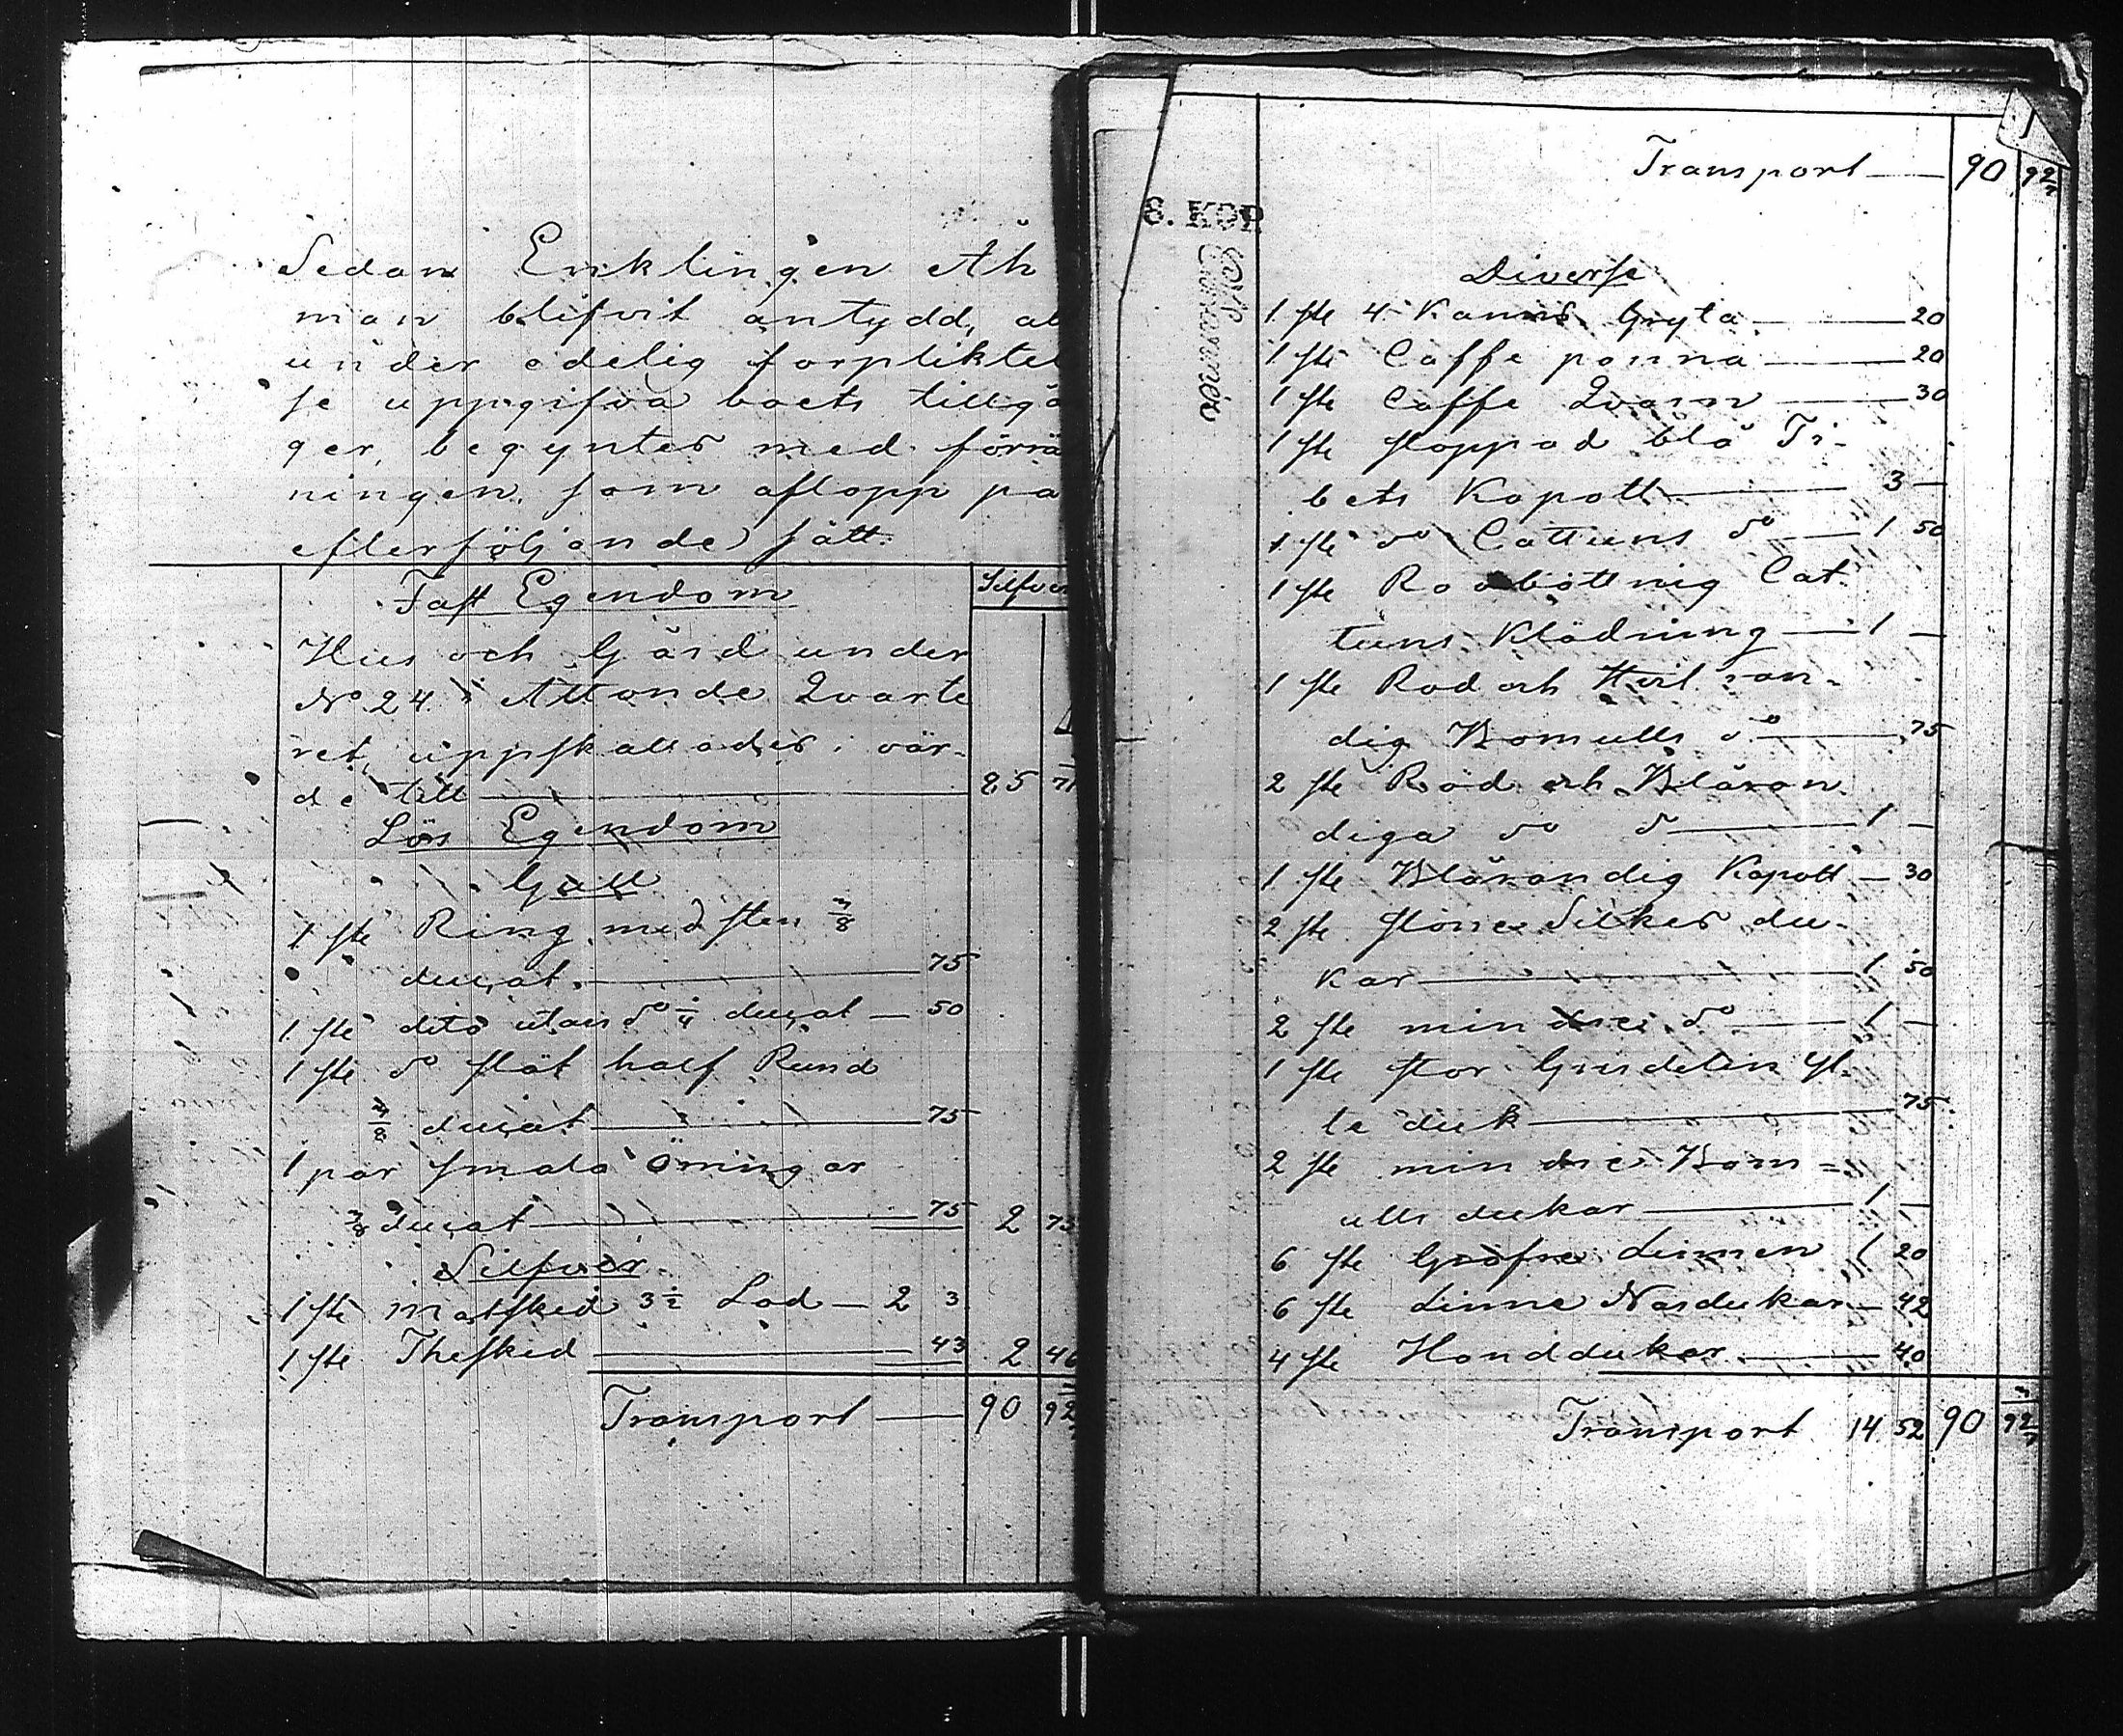 Sedan Enklingen Åh
man blifvit antydd, at
under edelig forpliktel
se uppgifva boets tillgå
ger, begyntes med förrä
ningen, som aflopp på
efterföljande sätt.
Fast Egendom
Silfver
Hus och Gård under
No 24 i Attonde Qvarte
ret, uppskattades i vär-
de till 85 71
Lös Egendom
Gull
1 ste Ring med sten 3/8
ducat 75
1 ste dito utan do 1/4 ducat 50
1 ste do slät half Rund
3/8 ducat 75
1 par smala Öringar
3/8 ducat 75 2 75
Silfver
1 ste matsked 3 1/2 Lod 2 3
1 ste Thesked 43 2 46
Transport 90 92
1
Transport 90 92
S. KOP
Diverse
1 ste 4 Kanns Gryta 20
1 ste Caffe panna 20
1 ste Caffe Qvarn 30
1 ste stoppad blå Ti-
bets Kapott 3 —
1 ste do Cattuns do 1 50
1 ste Rödbottnig Cat
tuns Klädning 1 —
1 ste Röd och Hvit ran-
dig Bomulls do 75
2 ste Röd och Blåran
diga do do 1 —
1 ste Blårandig Kapott 30
2 ste större Silkes du-
kar 1 50
2 ste mindre do 1 —
1 ste stor Grisdelin Yl-
le duk 75
2 ste mindre Bom =
ulls dukar 1 —
6 ste Gröfre Linnen 1 20
6 ste Linne Näsdukar 42
4 ste Handdukar 40
Transport 14 52 90 92